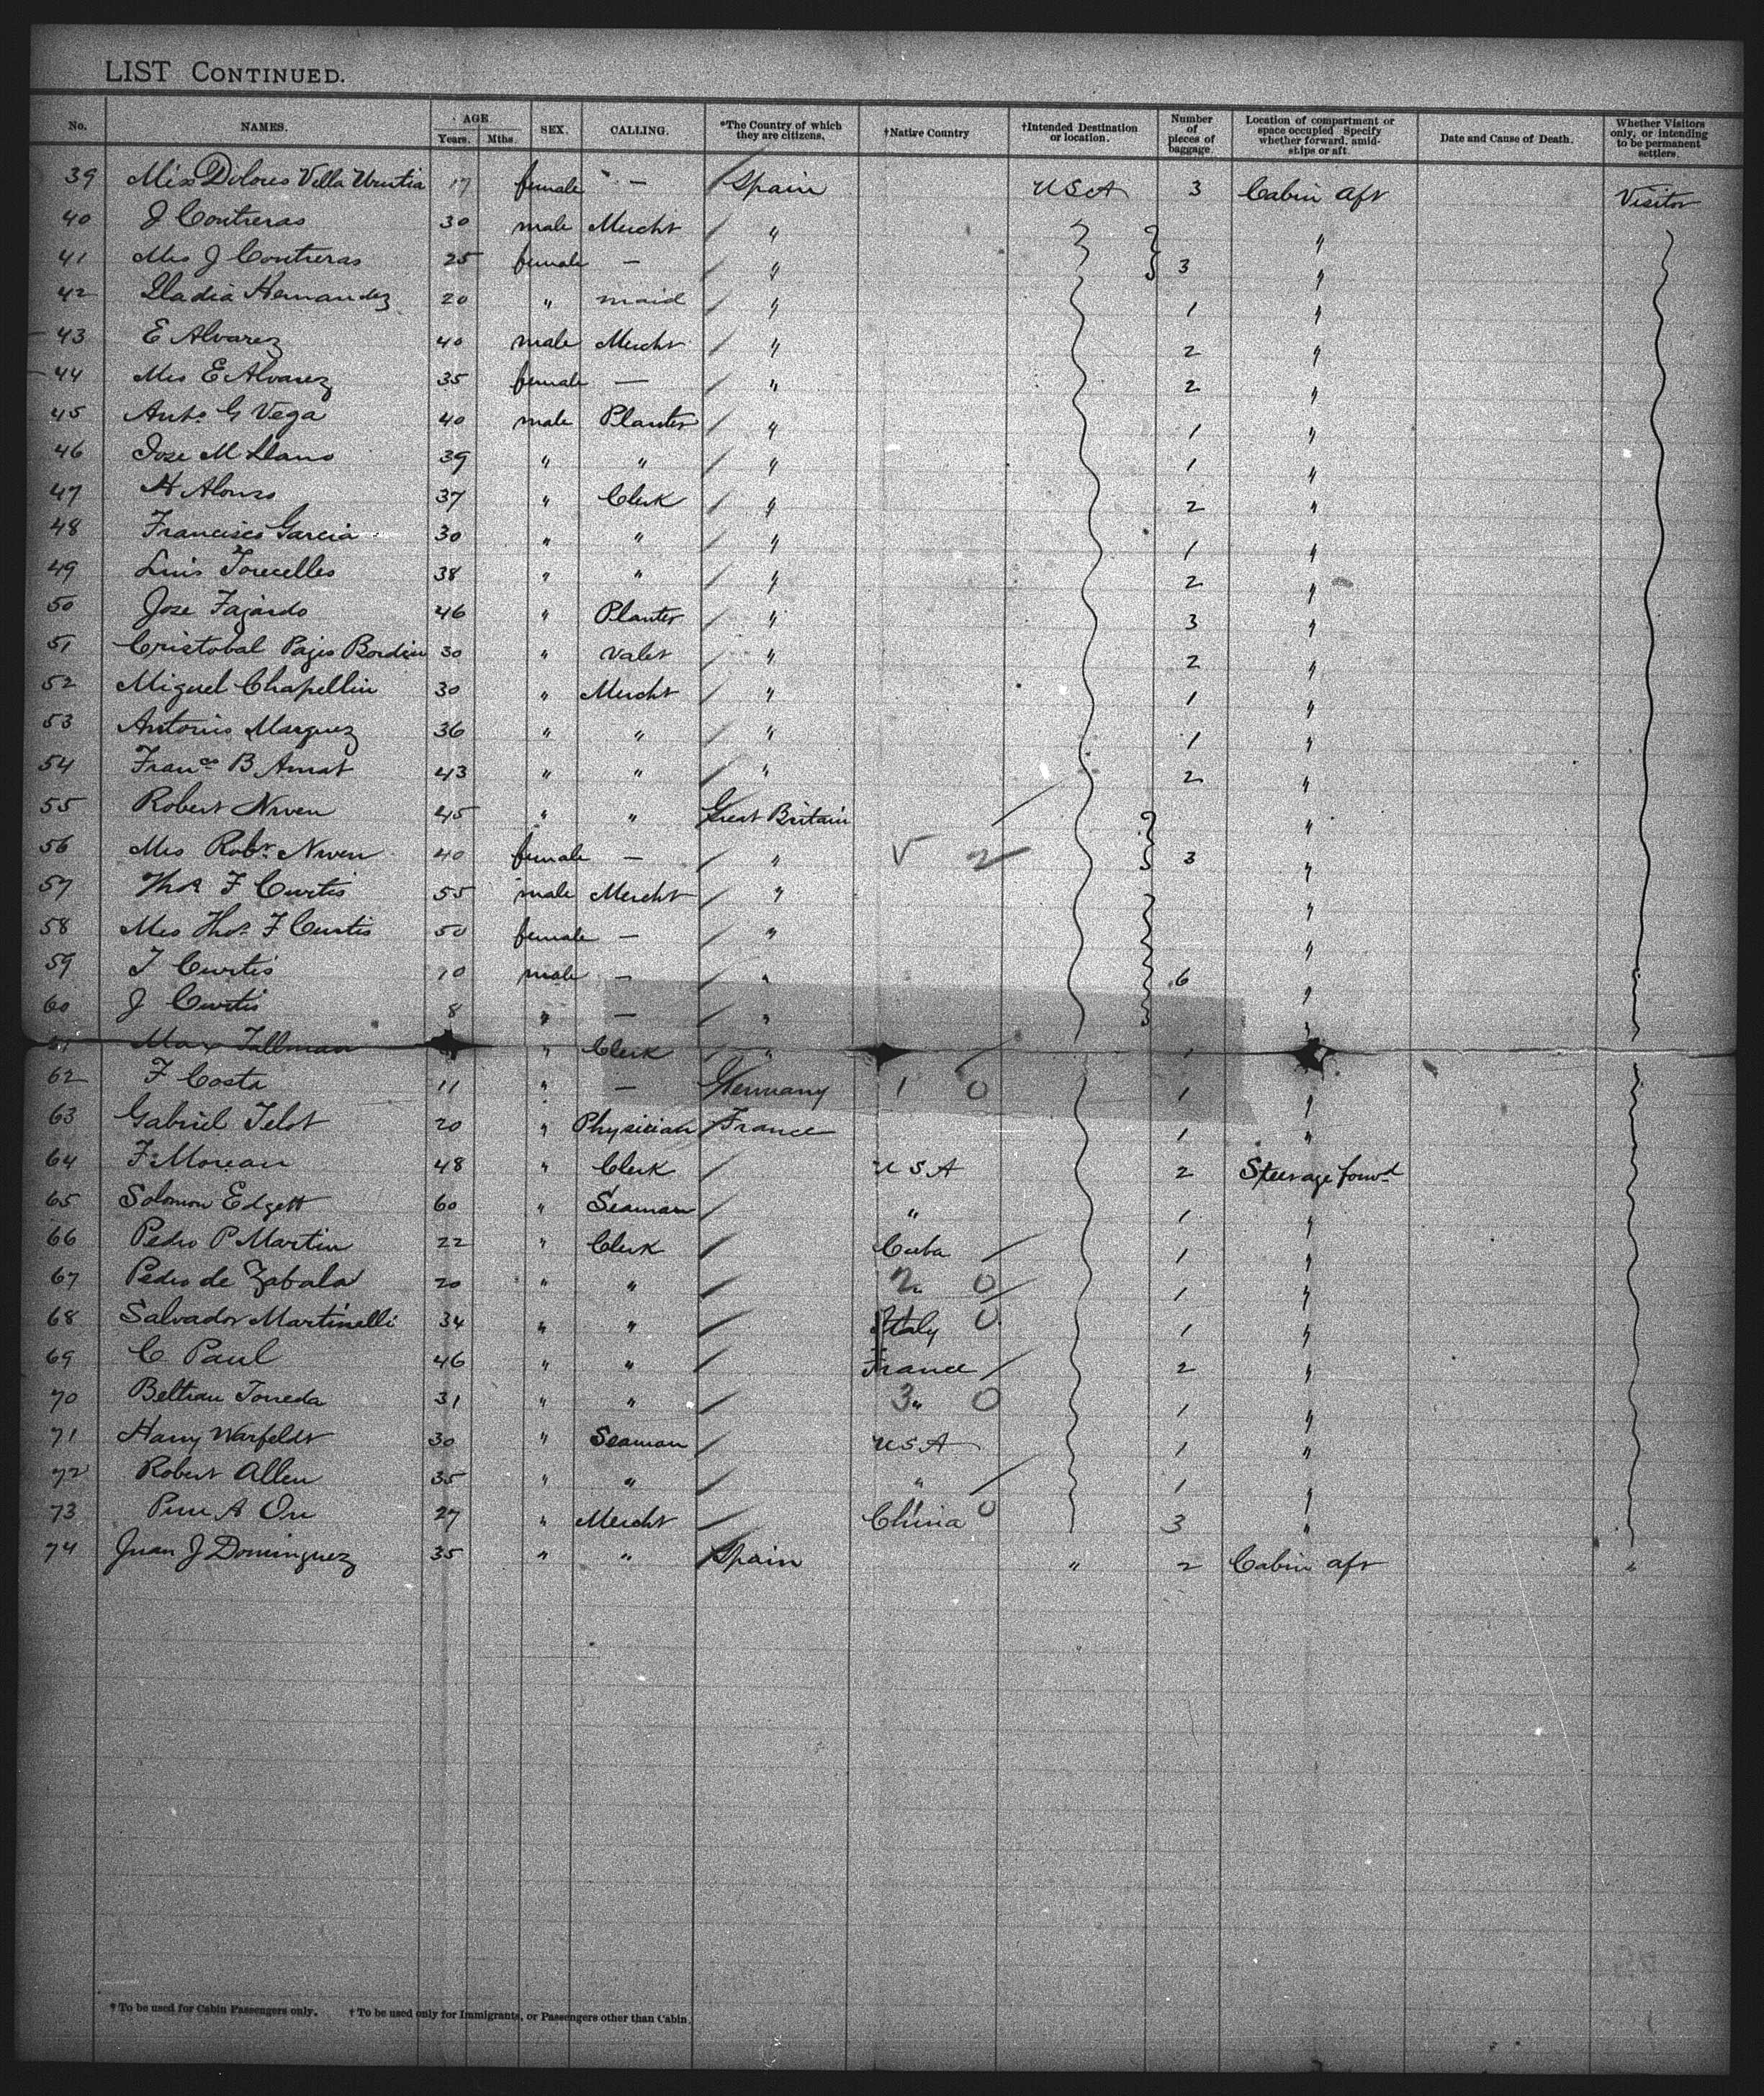 LIST CONTINUED.
No. NAMES. AGE. Years. Mths. SEX. CALLING. *The Country of which they are citizens. †Native Country †Intended Destination or location. Number of pieces of baggage. Location of compartment or space occupied Specify whether forward, amidships or aft. Date and Cause of Death. Whether Visitors only, or intending to be permanent settlers.
39 Miss Dolores Villa Urrutia 17 female — Spain USA 3 Cabin aft Visitor
40 J Contreras 30 male Mercht " "
41 Mrs J Contreras 25 female — " 3 "
42 Hernandez 20 " maid " 1 "
43 E Alvarez 40 male Mercht " 2 "
44 Mrs E Alvarez 35 female — " 2 "
45 Anto. G Vega 40 male Planter " 1 "
46 Jose M Llano 39 " " " 1 "
47 H Alonso 37 " Clerk " 2 "
48 Francisco Garcia 30 " " " 1 "
49 Luis Torecelles 38 " " " 2 "
50 Jose Fajardo 46 " Planter " 3 "
51 Cristobal Pajes 30 " Valet " 2 "
52 Miguel Chapellin 30 " Mercht " 1 "
53 Antonio Marquez 36 " " " 1 "
54 Franco B Amat 43 " " " 2 "
55 Robert Niven 45 " " Great Britain "
56 Mrs Robt. Niven 40 female — " V 2 3 "
57 Thos F Curtis 55 male Mercht " "
58 Mrs Thos. F Curtis 50 female — " "
59 T Curtis 10 male — " 6 "
60 J Curtis 8 " — " "
61 Max Tallman " Clerk " 1
62 F Costa 11 " — Germany 1 0 1 "
63 Gabriel Telot 20 " Physician France 1 "
64 F Moreau 48 " Clerk USA 2 Steerage forwd
65 Solomon Edgett 60 " Seaman " 1 "
66 Pedro P Martin 22 " Clerk Cuba 1 "
67 Pedro de Zabala 20 " " 2 0 1 "
68 Salvador Martinelli 34 " " Italy 0 1 "
69 C Paul 46 " " France 2 "
70 Beltran Torreda 31 " " 3 " 0 1 "
71 Harry Warfeldt 30 " Seaman USA 1 "
72 Robert Allen 35 " " " 1 "
73 A 27 " Mercht China 0 3 "
74 Juan J Dominguez 35 " " Spain " 2 Cabin aft "
* To be used for Cabin Passengers only. † To be used only for Immigrants, or Passengers other than Cabin.